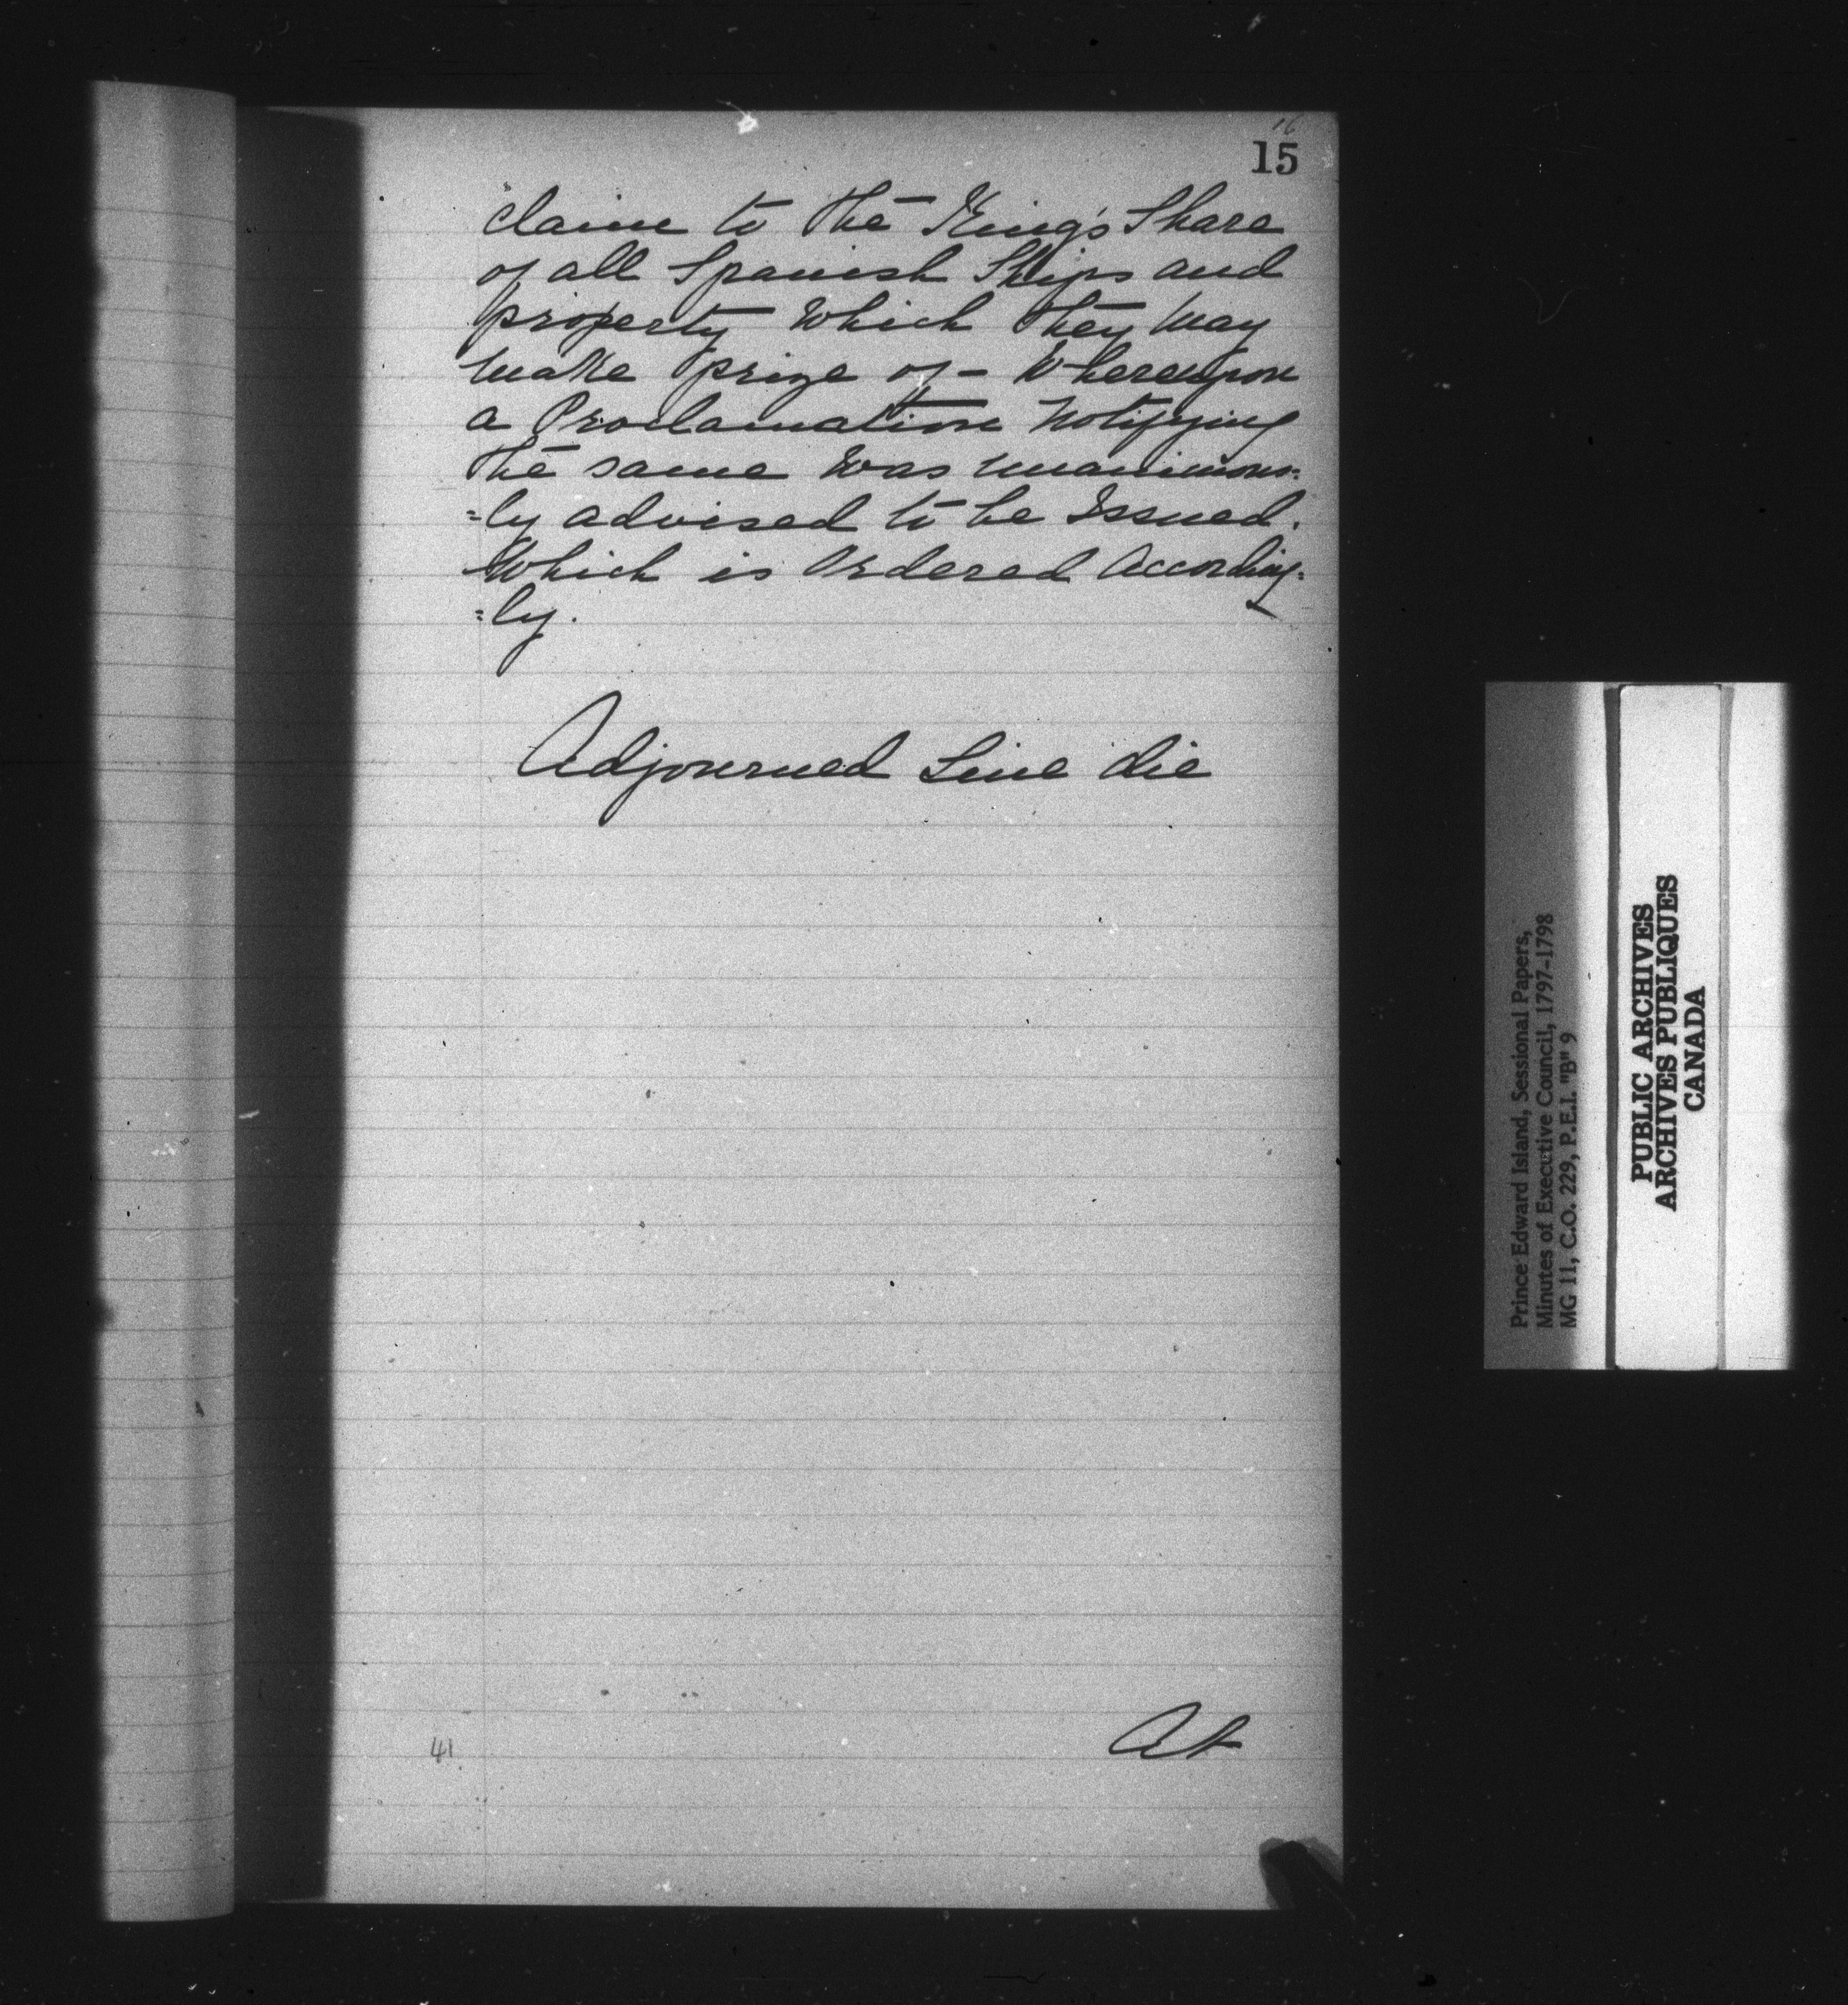 16
15
claim to the King's Share
of all Spanish Ships and
property which they may
make prize of - Whereupon
a Proclamation notifying
the same was unanimous=
=ly advised to be Issued.
Which is Ordered According=
=ly.
Adjourned Sine die
At
41
Prince Edward Island, Sessional Papers,
Minutes of Executive Council, 1797-1798
MG 11, C.O. 229, P.E.I. "B" 9
PUBLIC ARCHIVES
ARCHIVES PUBLIQUES
CANADA